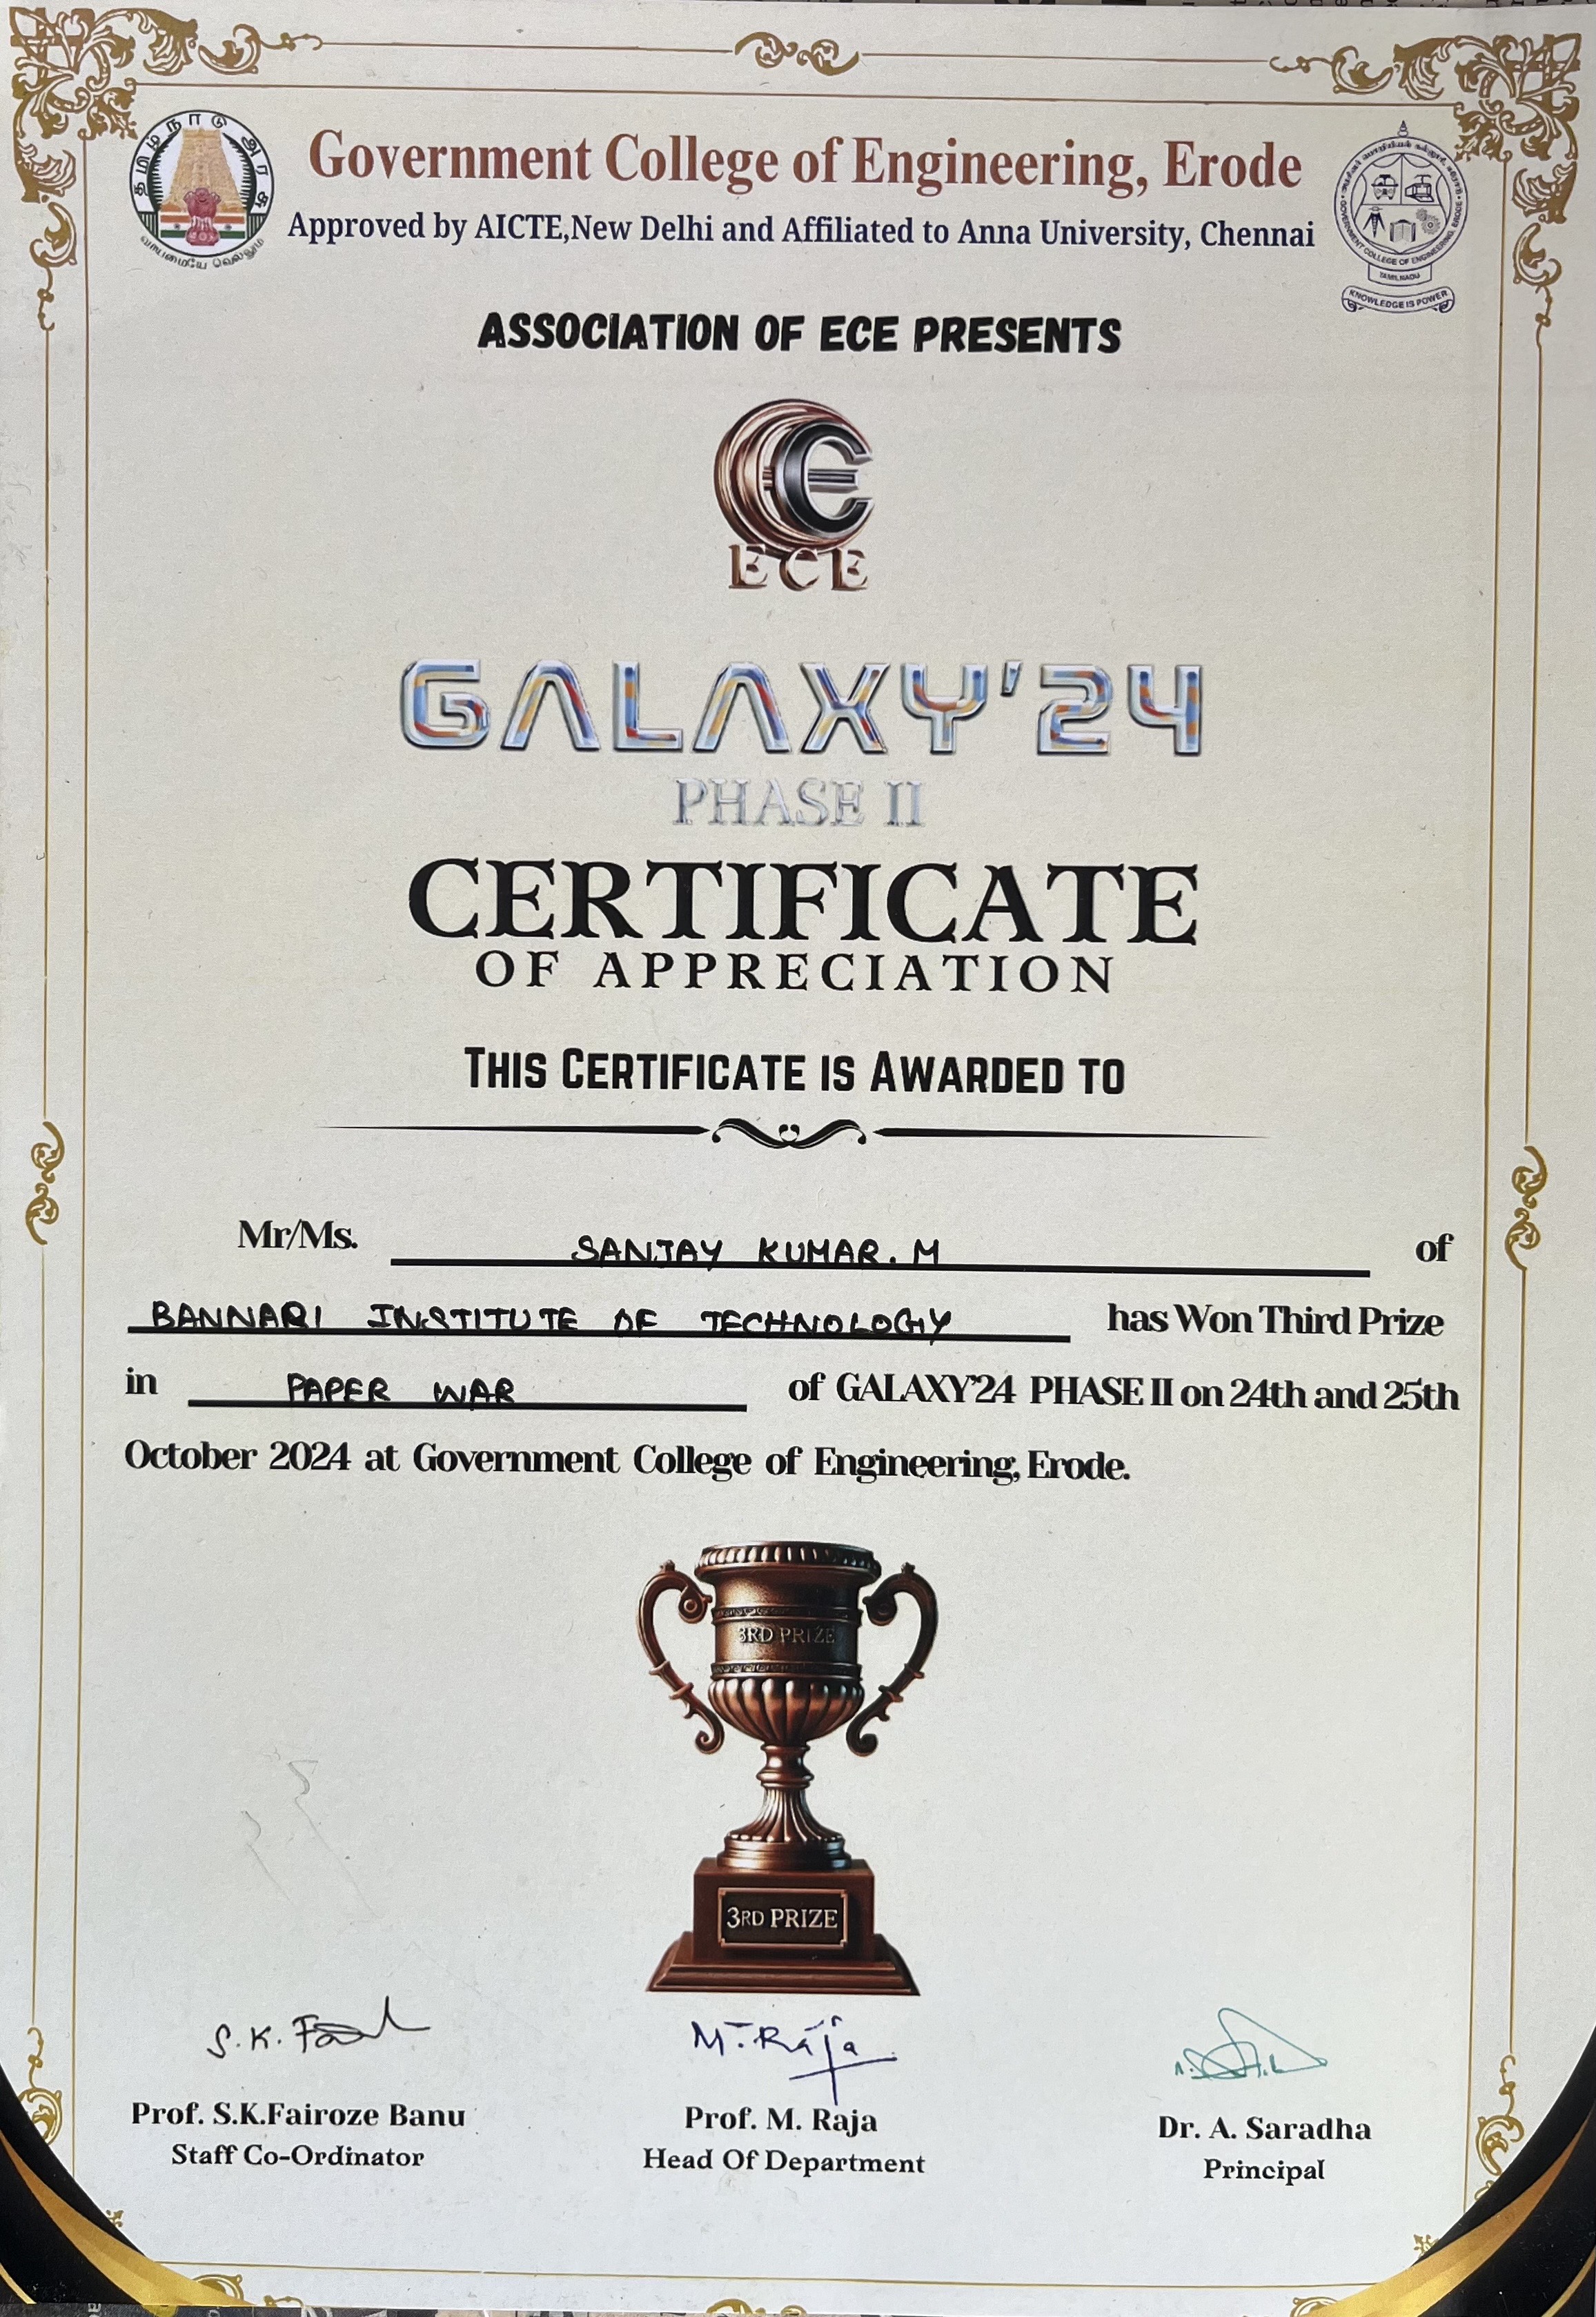 தமிழ்நாடு அரசு
வாய்மையே வெல்லும்
Government College of Engineering, Erode
Approved by AICTE,New Delhi and Affiliated to Anna University, Chennai
GOVERNMENT COLLEGE OF ENGINEERING, ERODE
TAMILNADU
KNOWLEDGE IS POWER
ASSOCIATION OF ECE PRESENTS
ECE
GALAXY'24
PHASE II
CERTIFICATE
OF APPRECIATION
THIS CERTIFICATE IS AWARDED TO
Mr/Ms. SANJAY KUMAR. M of
BANNARI INSTITUTE OF TECHNOLOGY has Won Third Prize
in PAPER WAR of GALAXY'24 PHASE II on 24th and 25th
October 2024 at Government College of Engineering, Erode.
3RD PRIZE
3RD PRIZE
S.K. M. Raja
Prof. S.K.Fairoze Banu Prof. M. Raja Dr. A. Saradha
Staff Co-Ordinator Head Of Department Principal